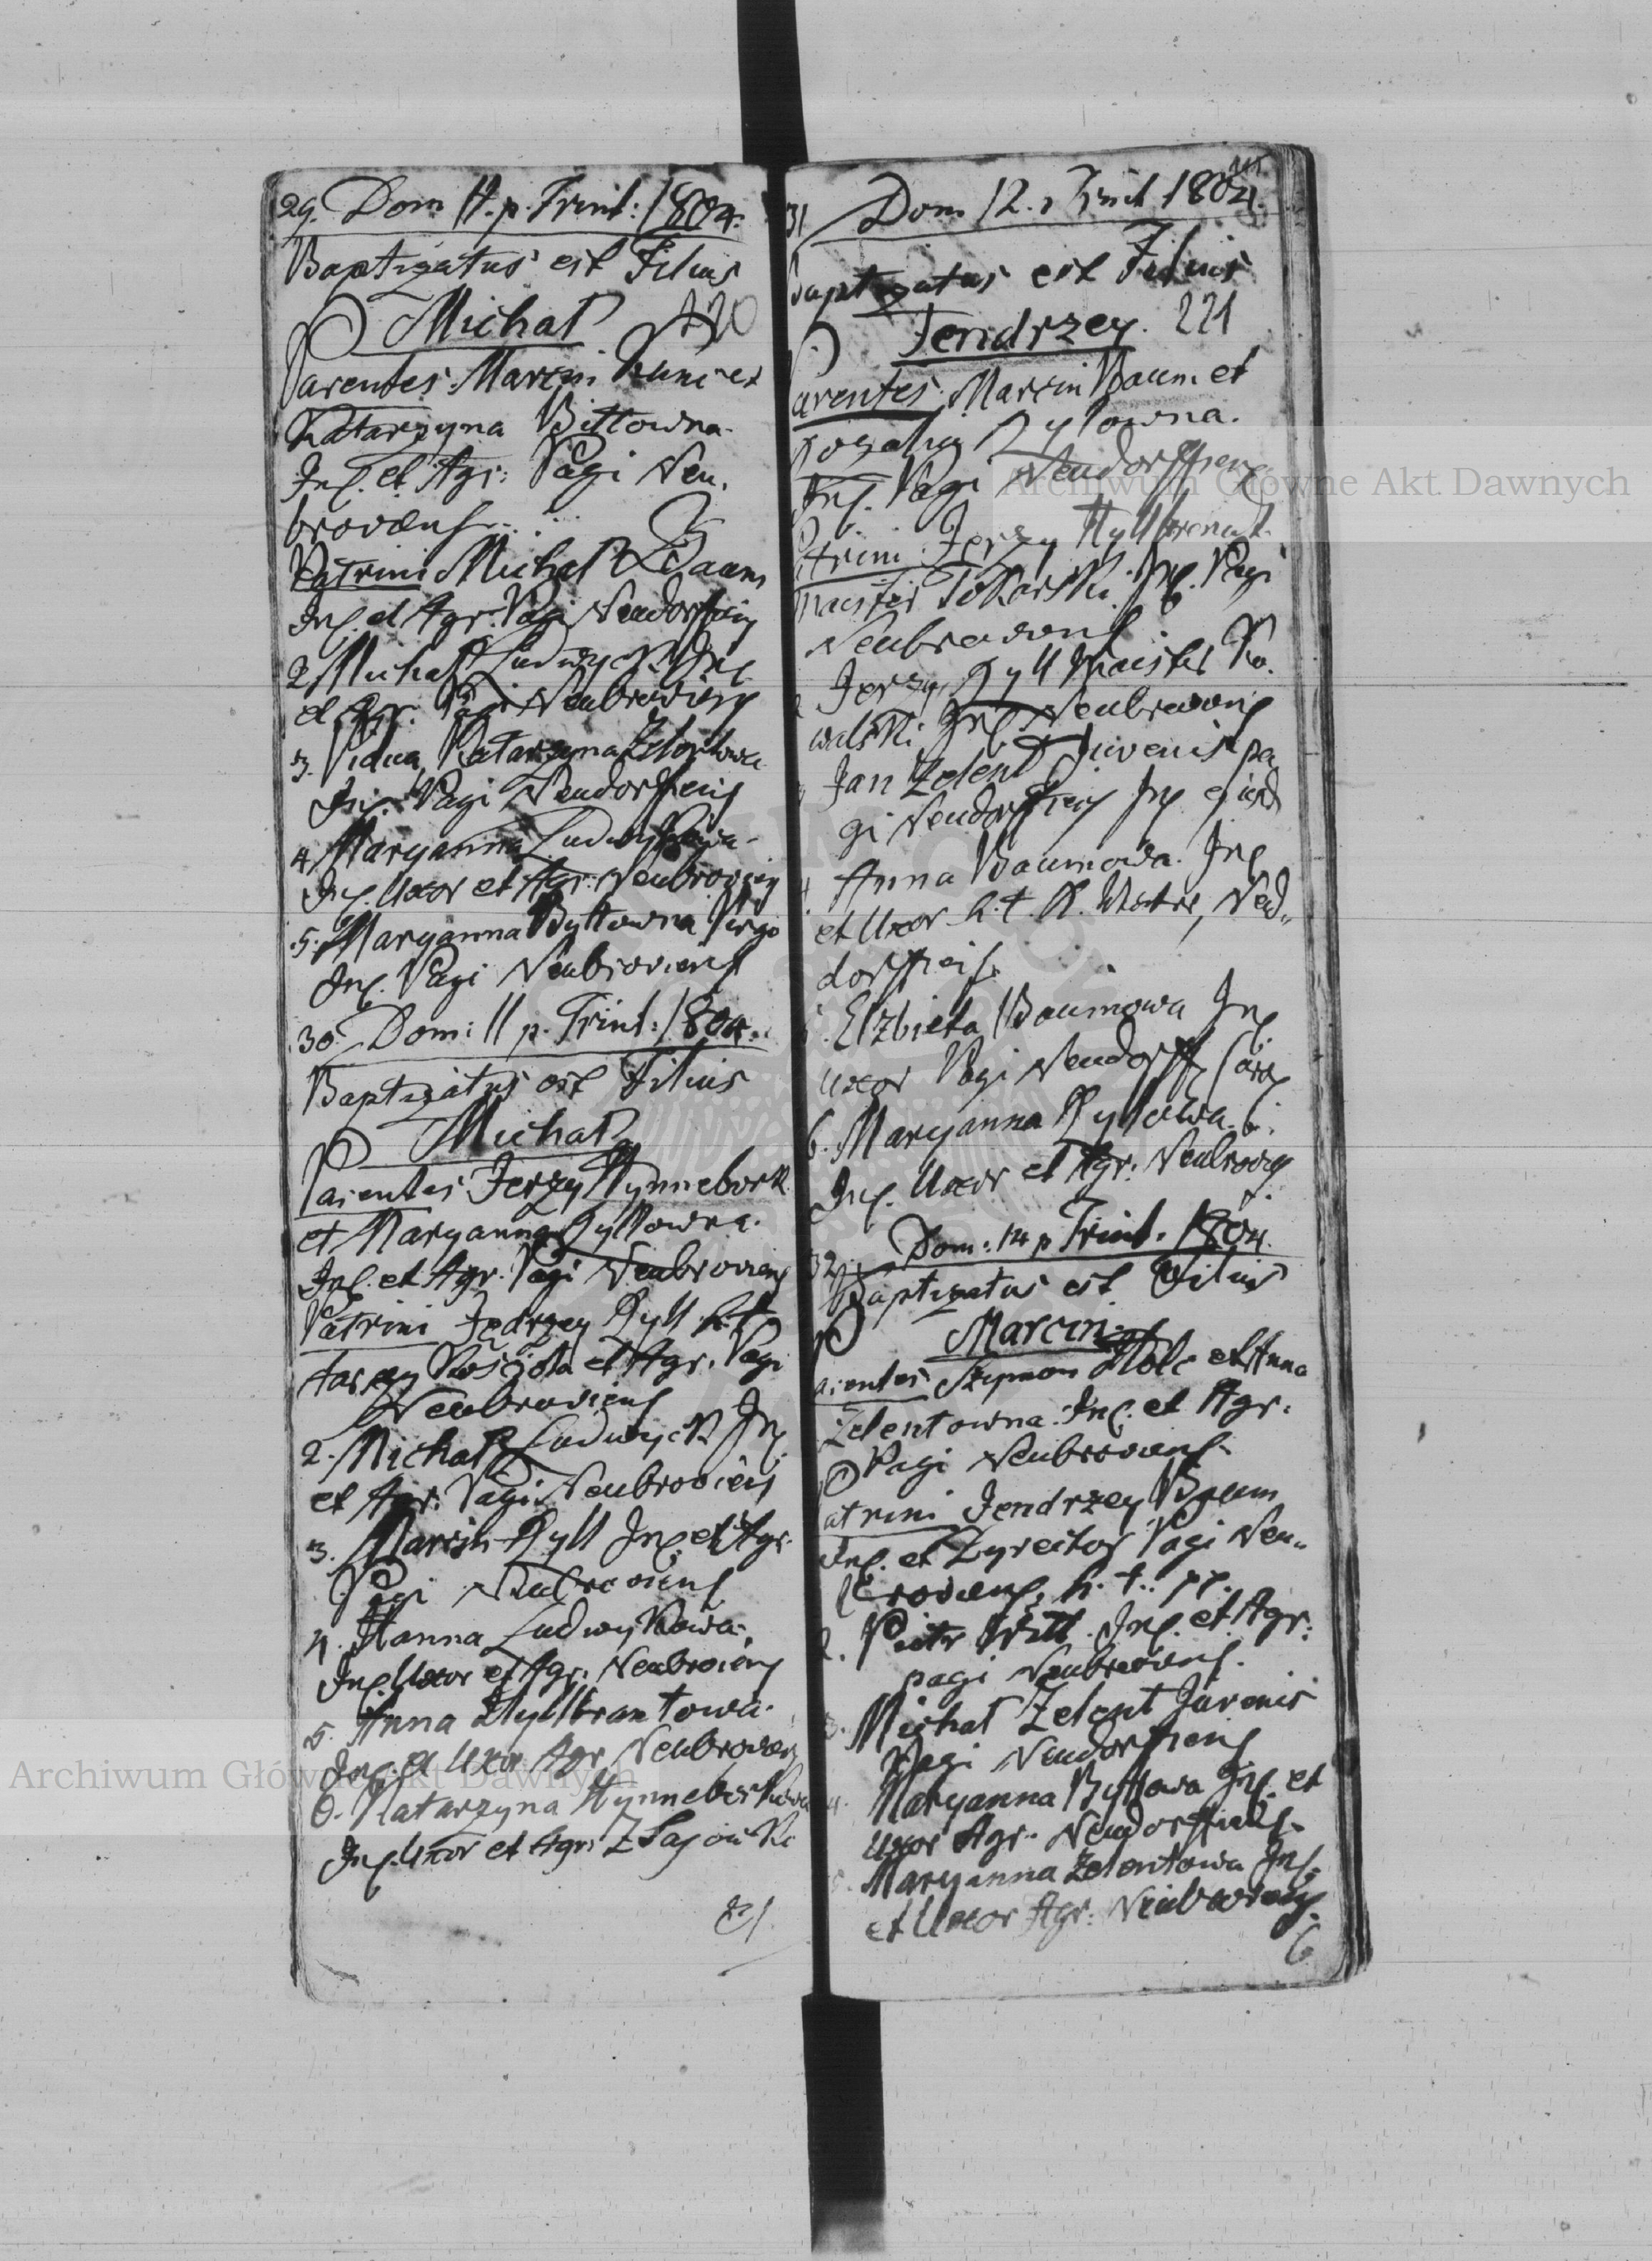 29. Dom 11. p. Trinit: 1804.
Baptizatus est Filius
Michał 220
Parentes Marcin Kunc et
Katarzyna Bittowna
Inq. et Agr: Pagi Neu,
brovens
Patrini Michał Baum
Inq. et Agr. Pagi Neudorffiens
2 Michał Ludwyck Inq
et Agr. Pagi Neubroviens
3. Vidua Katarzyna Zelentowa
Inq. Pagi Neudorffiens
4. Maryanna Ludwykowa
Inq. Uxor et Agr. Neubroviens
5. Maryanna Byttowna Virgo
Inq. Pagi Neubroviens
30. Dom: 11 p. Trinit: 1804.
Baptizatus est Filius
Michał
Parentes Jerzy Hynnebork
et Maryanna Ryllowna.
Inq. et Agr. Pagi Neubroviens
Patrini Jędrzey Ryll h. t.
Kościoła et Agr. Pagi
Neubroviens
2. Michał Ludwyck Inq.
et Agr. Pagi Neubroviens
3. Marcin Ryll Inq. et Agr.
Pagi Neubroviens
4. Hanna Ludwykowa.
Inq. Uxor et Agr. Neubroviens
5. Anna Hyllbrantowa.
Inq. et Uxor Agr Neubroviens
6. Katarzyna Hynneborkowa
Inq. Uxor et Agr. Z
31.
31 Dom 12. p Trinit 1804.
Baptizatus est Filius
Jendrzey. 221
Parentes Marcin Baum et
Rozalia Rylowna.
Inq. Pagi Neudorffiens
Patrini Jerzy Hyllbrandt
Maister Tokarski Inq. Pagi
Neubrovens
2 Jerzy Ryll Maister Ko.
walski, Inq. Neubroviens
Jan Zelent Juvenis pa
gi Neudorffiens Inq
4 Anna Baumowa. Inq
et Uxor h. t. Neu"
dorffiens.
5. Elzbieta Baumowa Inq
uxor Pagi Neudorff
6. Maryanna Ryllowa.
Inq. Uxor et Agr. Neubroviens
32. Dom: 14 p Trinit. 1804.
Baptizatus est Filius
Marcin
Parentes Szymon et Anna
Zelentowna. Inq. et Agr.
Pagi Neubrovens.
Patrini Jendrzey Baum
Inq. et Dyrecitor Pagi Neu"
brovens, h. t.
2. Piotr Witt. Inq. et Agr.
pagi Neubrovens.
3. Michał Zelent Juvenis
Pagi Neudorffiens
4. Maryanna Byttowa Inq. et
uxor Agr. Neudorffiens.
5. Maryanna Zelentowa Inq.
et Uxor Agr: Neubroviens.
6
Archiwum Główne Akt Dawnych
Archiwum Główne Akt Dawnych